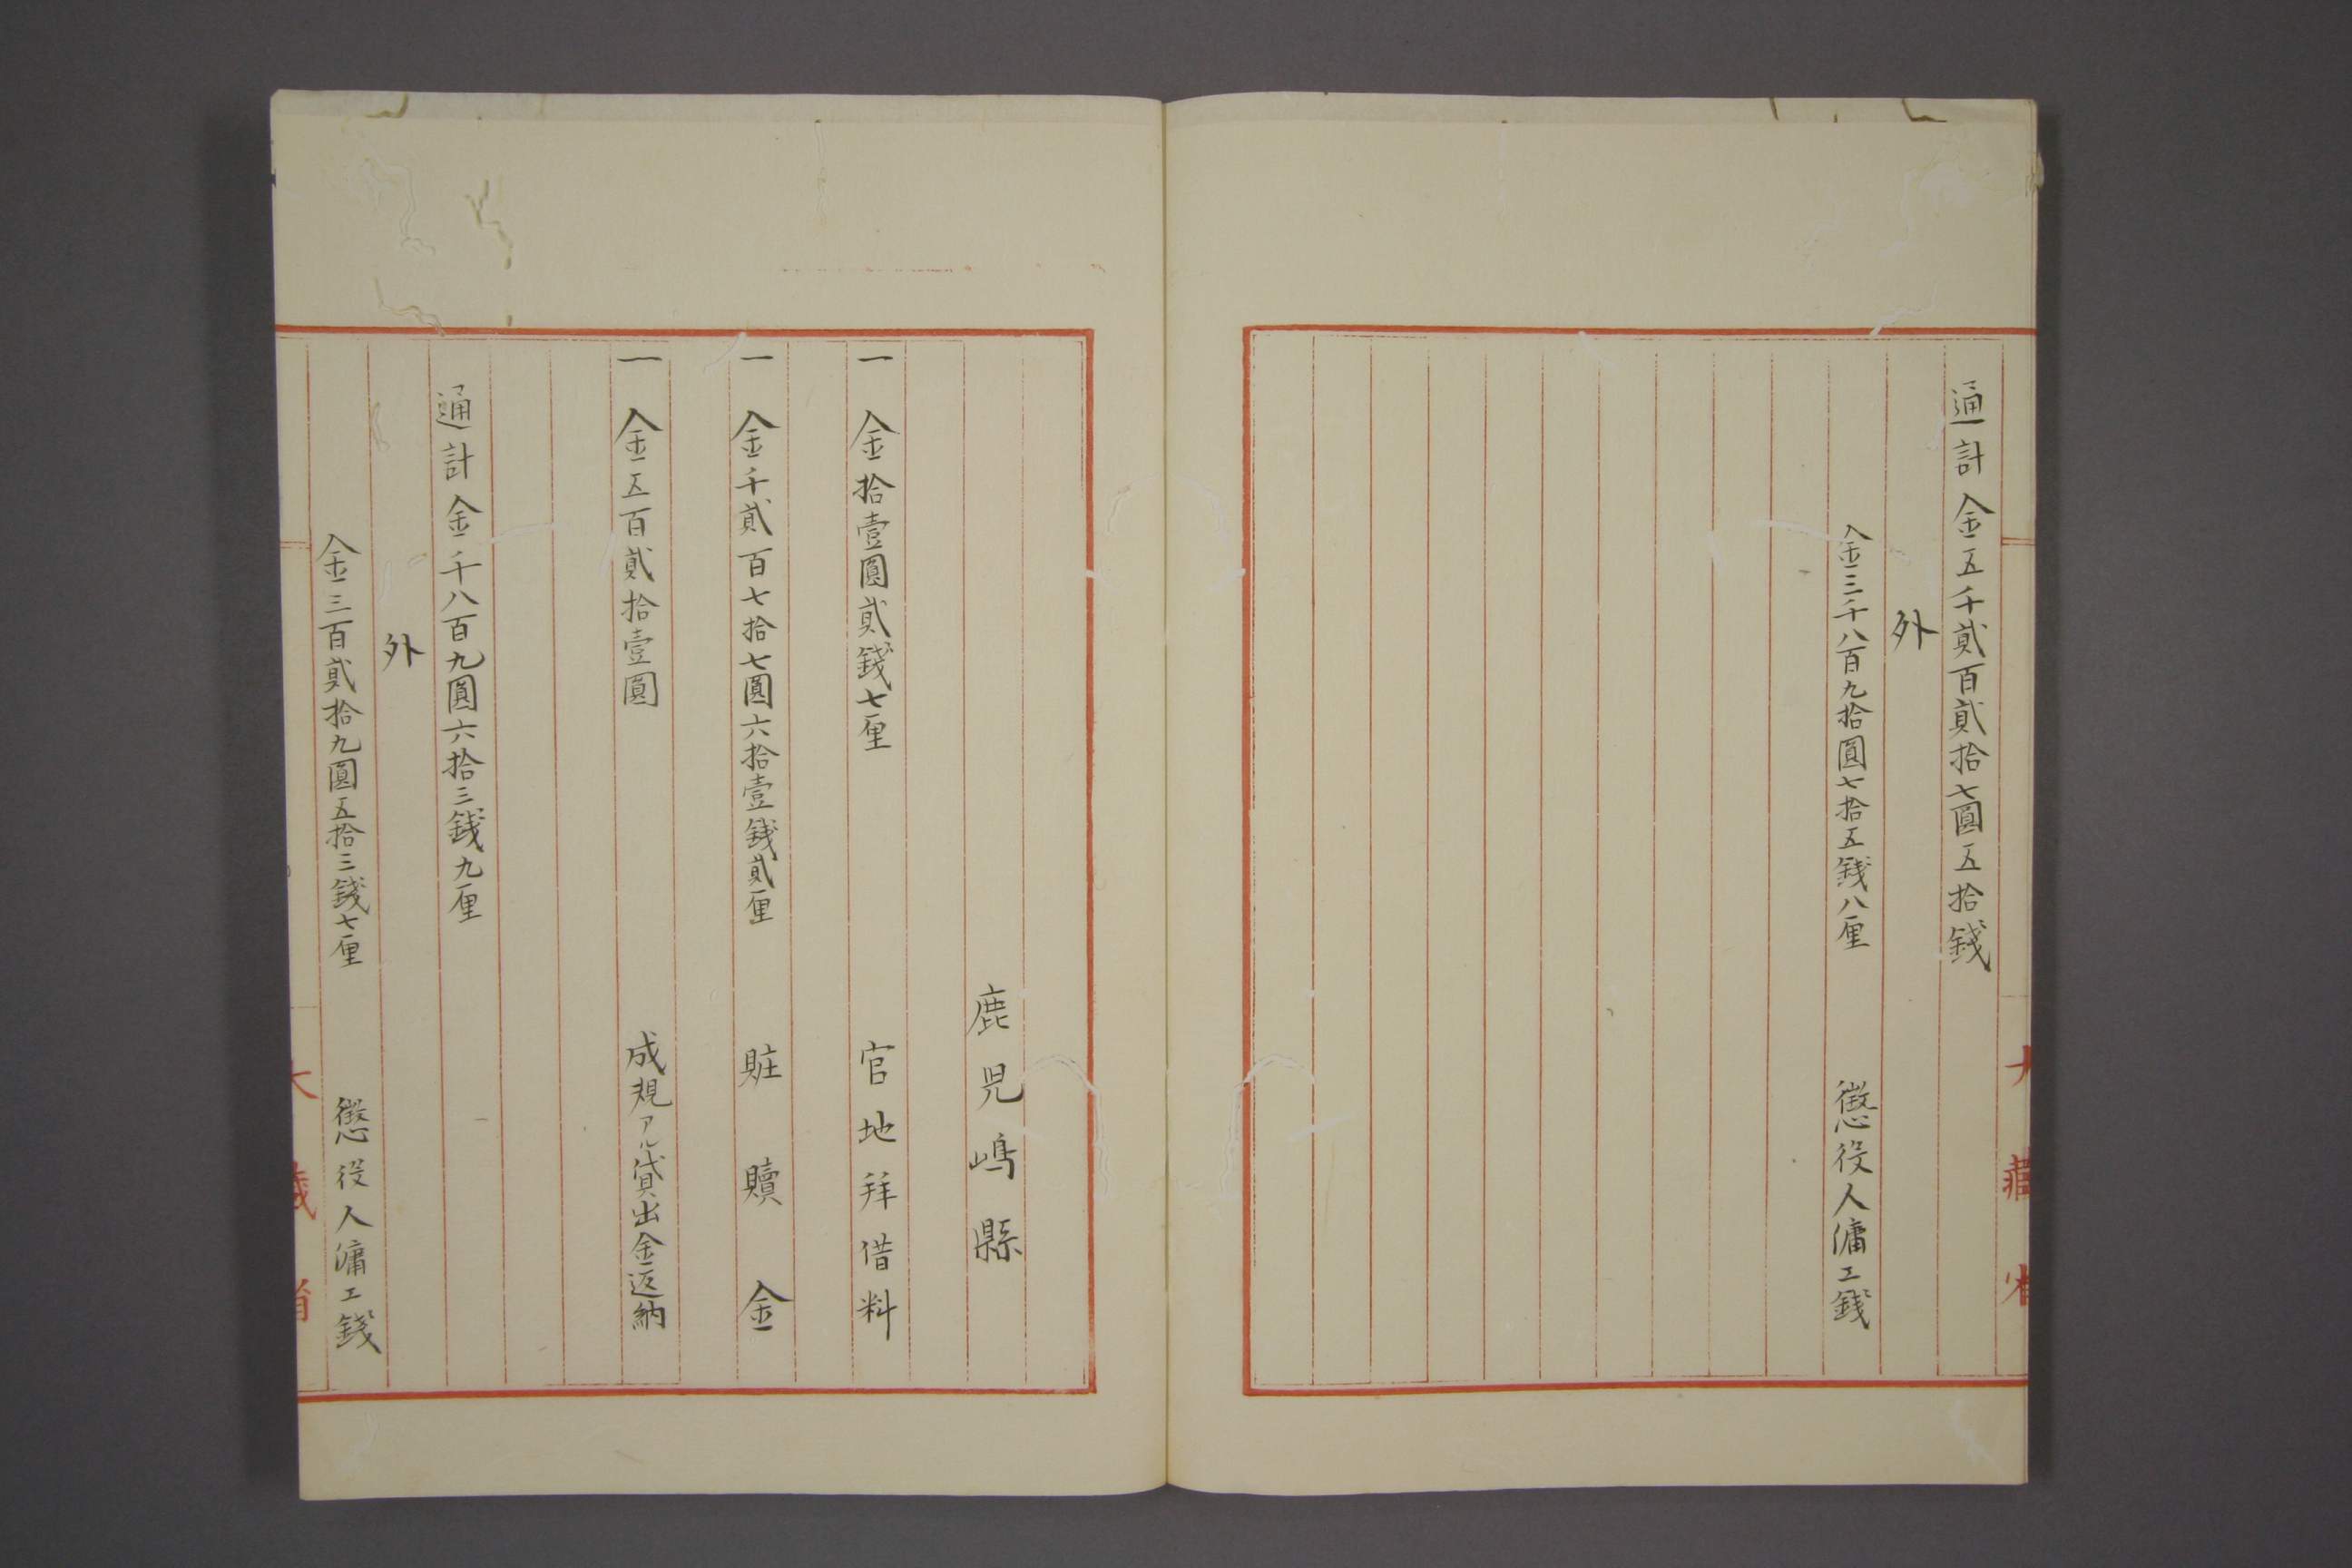 通計金五千貳百貳拾七圓五拾錢
外
金三千八百九拾圓七拾五錢八厘 懲役人傭工錢
大藏省
鹿児嶋縣
一 金拾壹圓貳錢七厘 官地拜借料
一 金千貳百七拾七圓六拾壹錢貳厘 贓贖金
一 金五百貳拾壹圓 成規アル貸出金返納
通計金千八百九圓六拾三錢九厘
外
金三百貳拾九圓五拾三錢七厘 懲役人傭工錢
大藏省